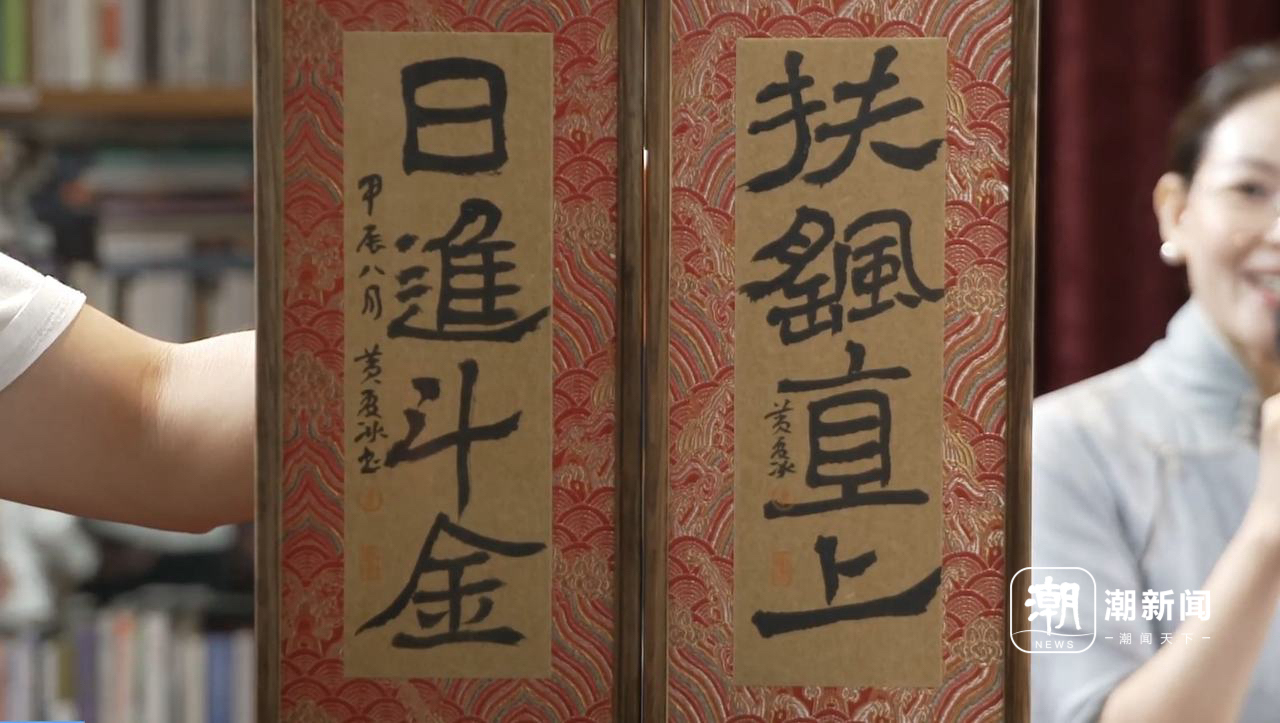 扶飖直上
黄夏冰
日進斗金
甲辰八月 黄夏冰书
潮
NEWS
潮新闻
潮闻天下